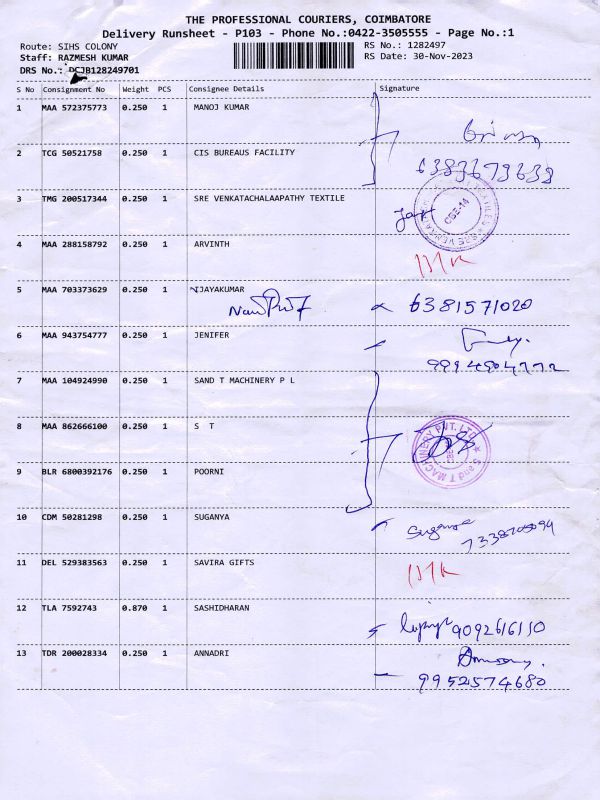 THE PROFESSIONAL COURIERS, COIMBATORE
Delivery Runsheet - P103 - Phone No.:0422-3505555 - Page No.:1
Route: SIHS COLONY RS No.: 1282497
Staff: RAZMESH KUMAR RS Date: 30-Nov-2023
DRS No.: DCJB128249701
S No Consignment No Weight PCS Consignee Details Signature
1 MAA 572375773 0.250 1 MANOJ KUMAR
2 TCG 50521758 0.250 1 CIS BUREAUS FACILITY
6383679638
3 TMG 200517344 0.250 1 SRE VENKATACHALAAPATHY TEXTILE
CBE-14
4 MAA 288158792 0.250 1 ARVINTH
5 MAA 703373629 0.250 1 VIJAYAKUMAR
6381571020
6 MAA 943754777 0.250 1 JENIFER
9994904772
7 MAA 104924990 0.250 1 SAND T MACHINERY P L
8 MAA 862666100 0.250 1 S T
S and T MACHINERY PVT. LTD
9 BLR 6800392176 0.250 1 POORNI
10 CDM 50281298 0.250 1 SUGANYA
Suganya
11 DEL 529383563 0.250 1 SAVIRA GIFTS
12 TLA 7592743 0.870 1 SASHIDHARAN
9092616110
13 TDR 200028334 0.250 1 ANNADRI
9952574680